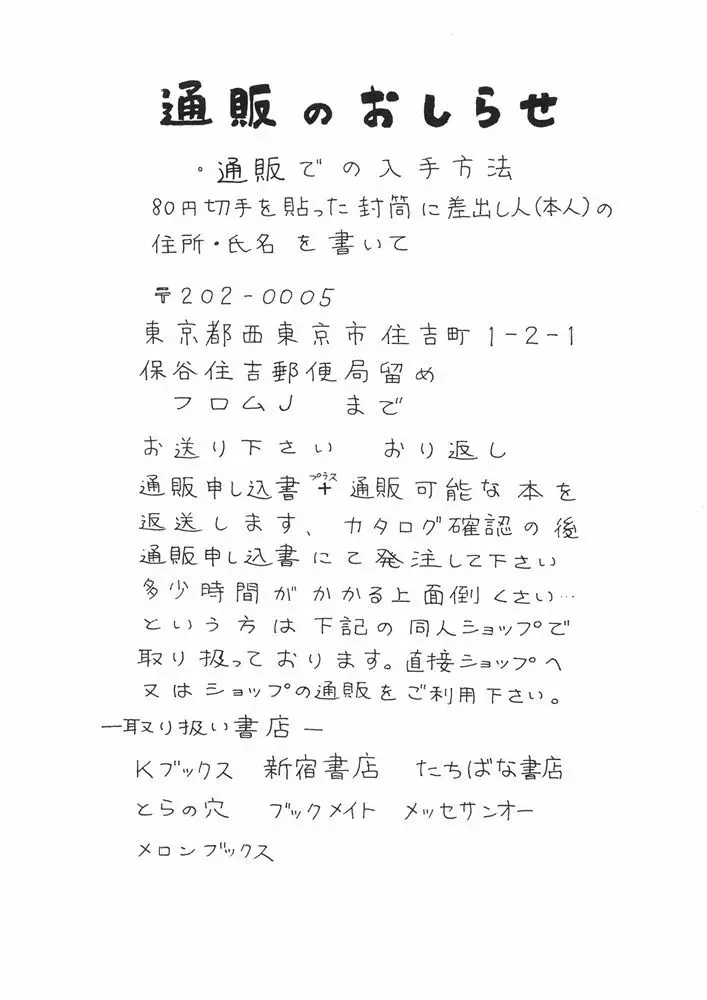 通販のおしらせ
・通販での入手方法
80円切手を貼った封筒に差出し人(本人)の
住所・氏名を書いて
〒202-0005
東京都西東京市住吉町1-2-1
保谷住吉郵便局留め
フロムJ まで
お送り下さい おり返し
通販申し込書プラス+通販可能な本を
返送します、カタログ確認の後
通販申し込書にて発注して下さい
多少時間がかかる上面倒くさい…
という方は下記の同人ショップで
取り扱っております。直接ショップへ
又はショップの通販をご利用下さい。
ー取り扱い書店ー
Kブックス 新宿書店 たちばな書店
とらの穴 ブックメイト メッセサンオー
メロンブックス